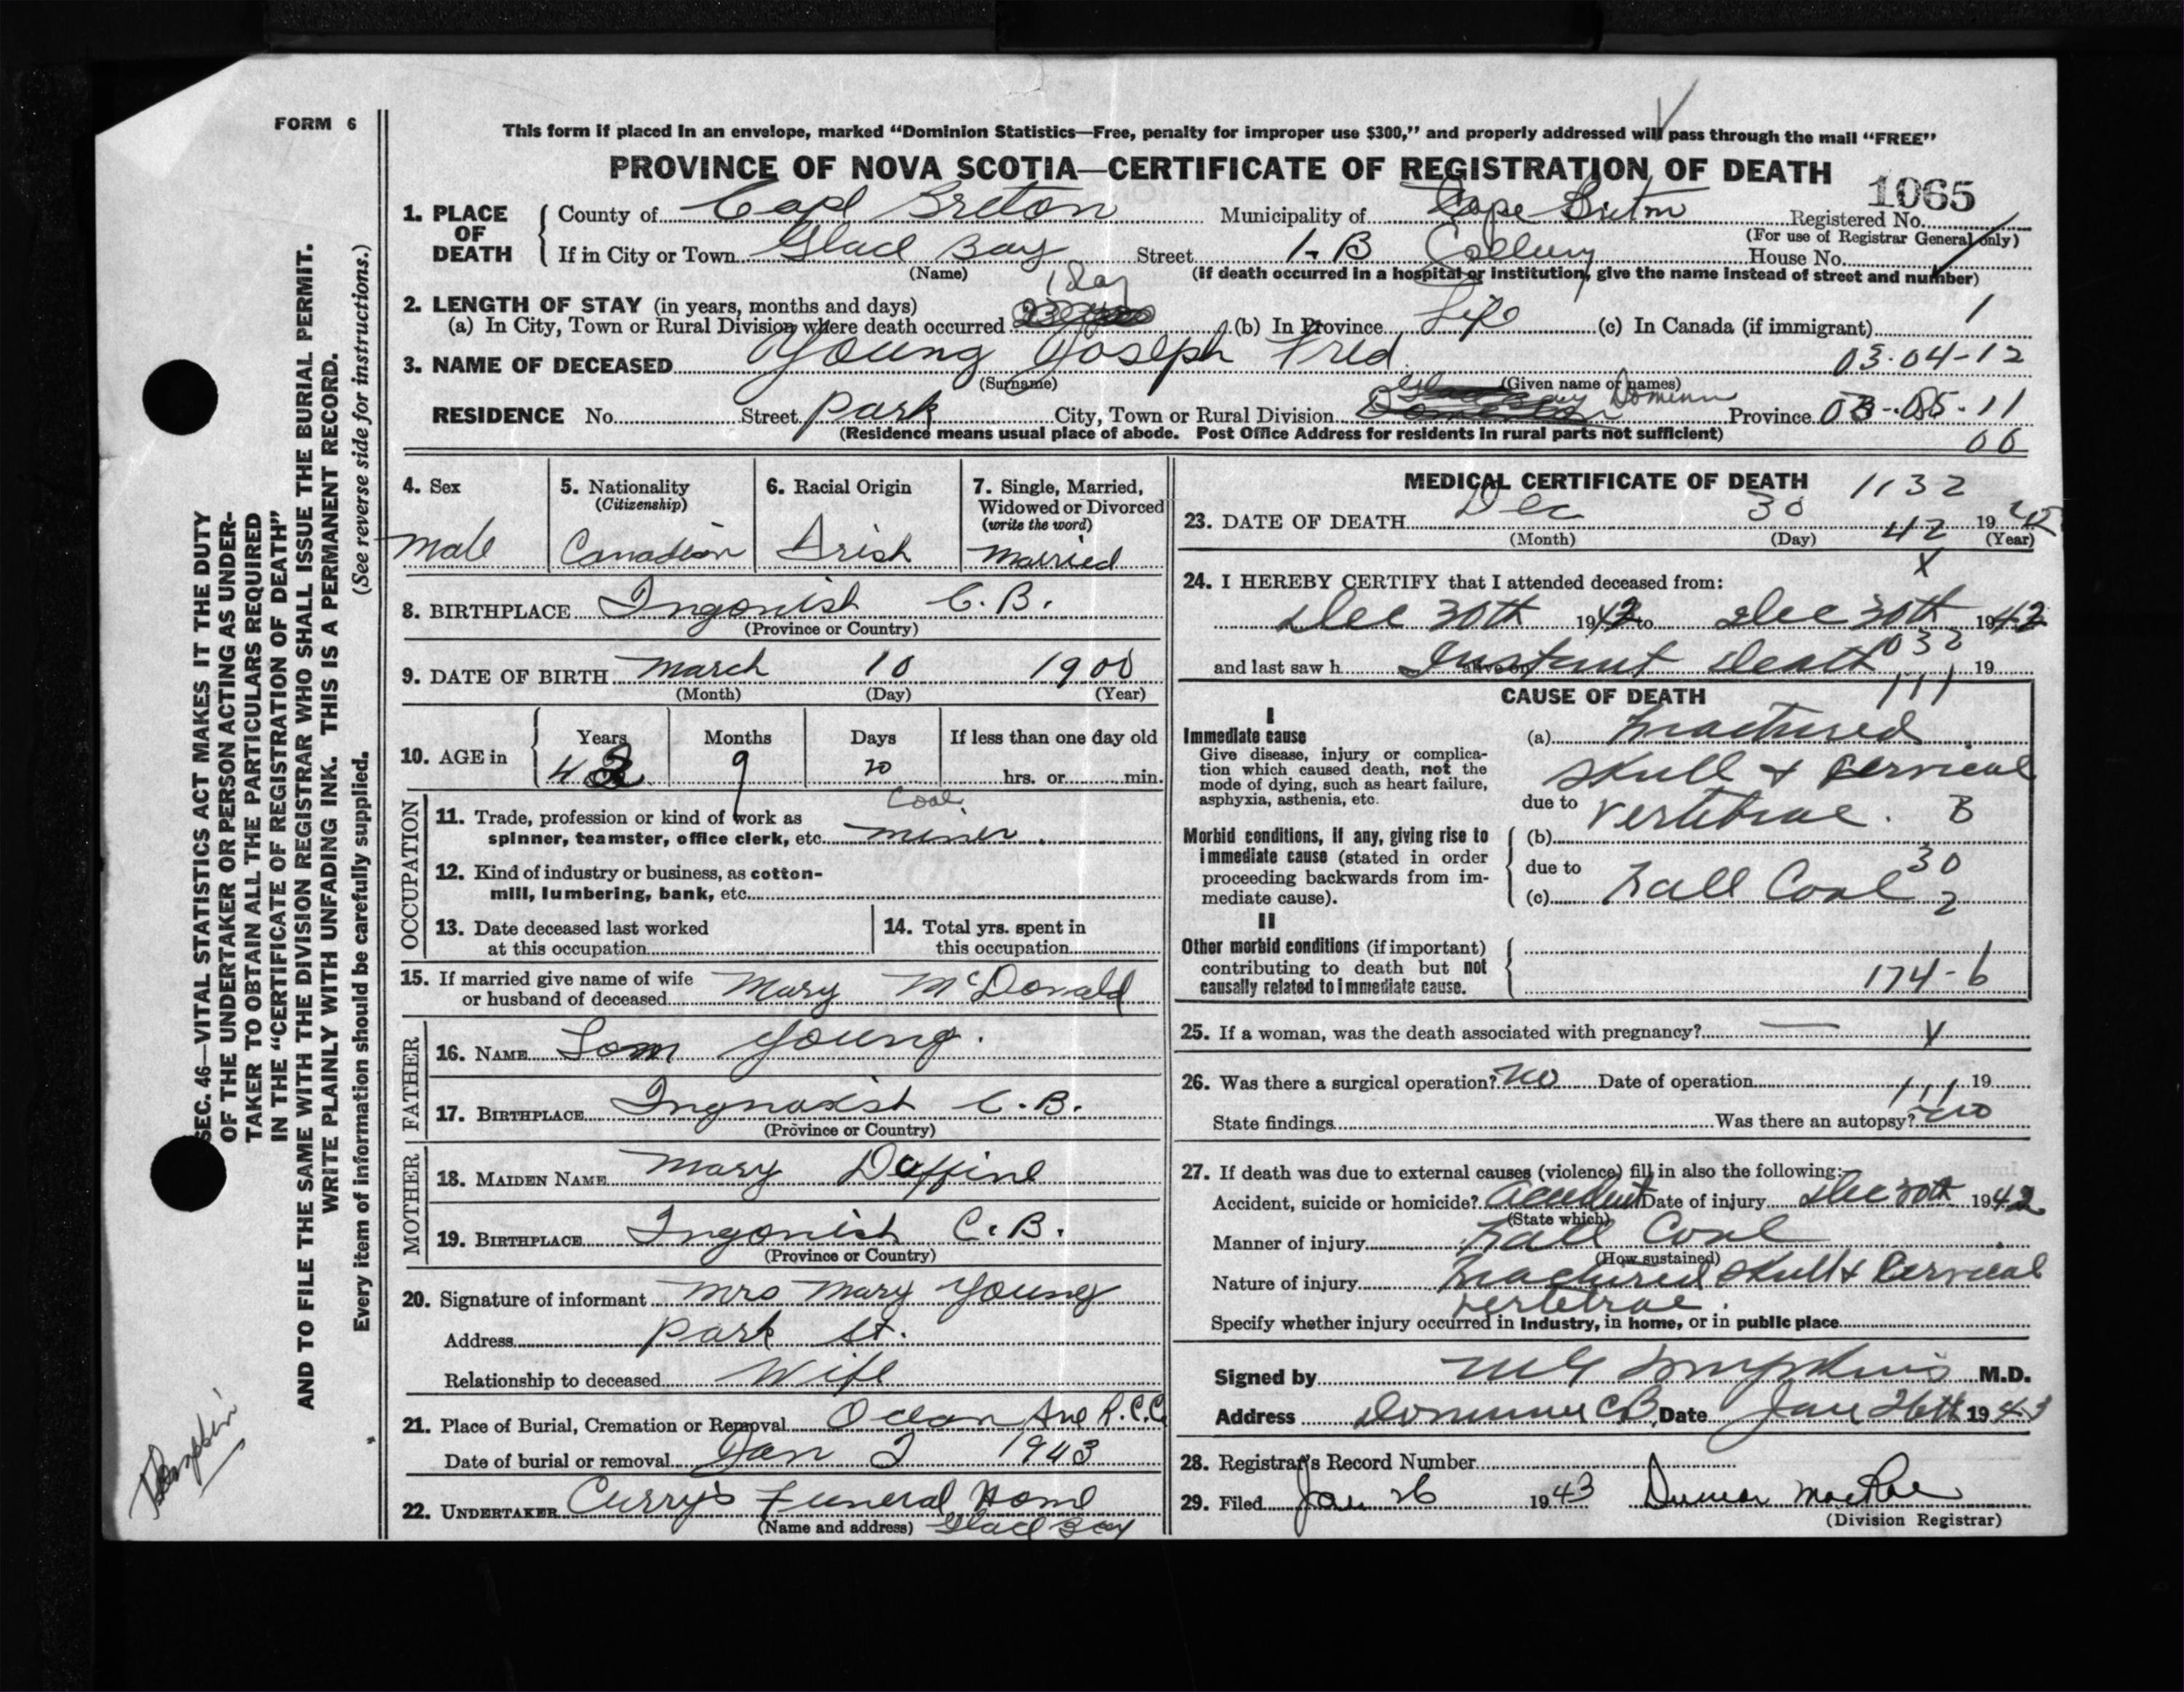 FORM 6
This form if placed in an envelope, marked “Dominion Statistics—Free, penalty for improper use $300,” and properly addressed will pass through the mail “FREE”
PROVINCE OF NOVA SCOTIA—CERTIFICATE OF REGISTRATION OF DEATH
1065
1. PLACE OF DEATH
County of Cape Breton Municipality of Cape Breton Registered No.
(For use of Registrar General only)
If in City or Town Glace Bay Street 1-B Colliery House No.
(Name) (If death occurred in a hospital or institution, give the name instead of street and number)
1 Day
2. LENGTH OF STAY (in years, months and days)
(a) In City, Town or Rural Division where death occurred (b) In Province Life (c) In Canada (if immigrant) 1
3. NAME OF DECEASED Young Joseph Fred. 03-04-12
(Surname) (Given name or names)
RESIDENCE No. Street Park City, Town or Rural Division Dominion Province 03-085-11
(Residence means usual place of abode. Post Office Address for residents in rural parts not sufficient) 00
4. Sex
Male
5. Nationality
(Citizenship)
Canadian
6. Racial Origin
Irish
7. Single, Married,
Widowed or Divorced
(write the word)
Married
8. BIRTHPLACE Ingonish C.B.
(Province or Country)
9. DATE OF BIRTH March 10 1900
(Month) (Day) (Year)
10. AGE in
Years Months Days If less than one day old
42 9 20 hrs. or min.
OCCUPATION
Coal
11. Trade, profession or kind of work as
spinner, teamster, office clerk, etc. miner
12. Kind of industry or business, as cotton-
mill, lumbering, bank, etc.
13. Date deceased last worked
at this occupation
14. Total yrs. spent in
this occupation
15. If married give name of wife
or husband of deceased Mary McDonald
FATHER
16. NAME Tom Young.
17. BIRTHPLACE Ingnoxist C.B.
(Province or Country)
MOTHER
18. MAIDEN NAME Mary Doffine
19. BIRTHPLACE Ingonish C.B.
(Province or Country)
20. Signature of informant Mrs Mary Young
Address Park St.
Relationship to deceased Wife
21. Place of Burial, Cremation or Removal Ocean Ave R.C.C
Date of burial or removal Jan 2 1943
22. UNDERTAKER Curry's Funeral Home
(Name and address) Glace Bay
MEDICAL CERTIFICATE OF DEATH 1132
23. DATE OF DEATH Dec 30 1942
(Month) (Day) 42 (Year)
X
24. I HEREBY CERTIFY that I attended deceased from:
Dec 30th 1942 to Dec 30th 1942
and last saw h alive on Instant Death 032 19
CAUSE OF DEATH 111
I
Immediate cause
Give disease, injury or complica-
tion which caused death, not the
mode of dying, such as heart failure,
asphyxia, asthenia, etc.
(a) Fractured
Skull & Cervical
due to Vertebrae. B
Morbid conditions, if any, giving rise to
immediate cause (stated in order
proceeding backwards from im-
mediate cause).
(b)
due to 30
(c) Fall Coal 2
II
Other morbid conditions (if important)
contributing to death but not
causally related to immediate cause.
174-6
25. If a woman, was the death associated with pregnancy? —
26. Was there a surgical operation? No Date of operation 19
111
State findings Was there an autopsy? No
27. If death was due to external causes (violence) fill in also the following:—
Accident, suicide or homicide? Accident Date of injury Dec 30th 1942
(State which)
Manner of injury Fall Coal
(How sustained)
Nature of injury Fractured Skull & Cervical
Vertebrae.
Specify whether injury occurred in Industry, in home, or in public place
Signed by M G Tompkins M.D.
Address Dominion CB Date Jan 26th 1943
28. Registrar's Record Number
29. Filed Jan 26 1943 Duncan MacRae
(Division Registrar)
SEC. 46—VITAL STATISTICS ACT MAKES IT THE DUTY
OF THE UNDERTAKER OR PERSON ACTING AS UNDER-
TAKER TO OBTAIN ALL THE PARTICULARS REQUIRED
IN THE “CERTIFICATE OF REGISTRATION OF DEATH”
AND TO FILE THE SAME WITH THE DIVISION REGISTRAR WHO SHALL ISSUE THE BURIAL PERMIT.
WRITE PLAINLY WITH UNFADING INK. THIS IS A PERMANENT RECORD.
Every item of information should be carefully supplied. (See reverse side for instructions.)